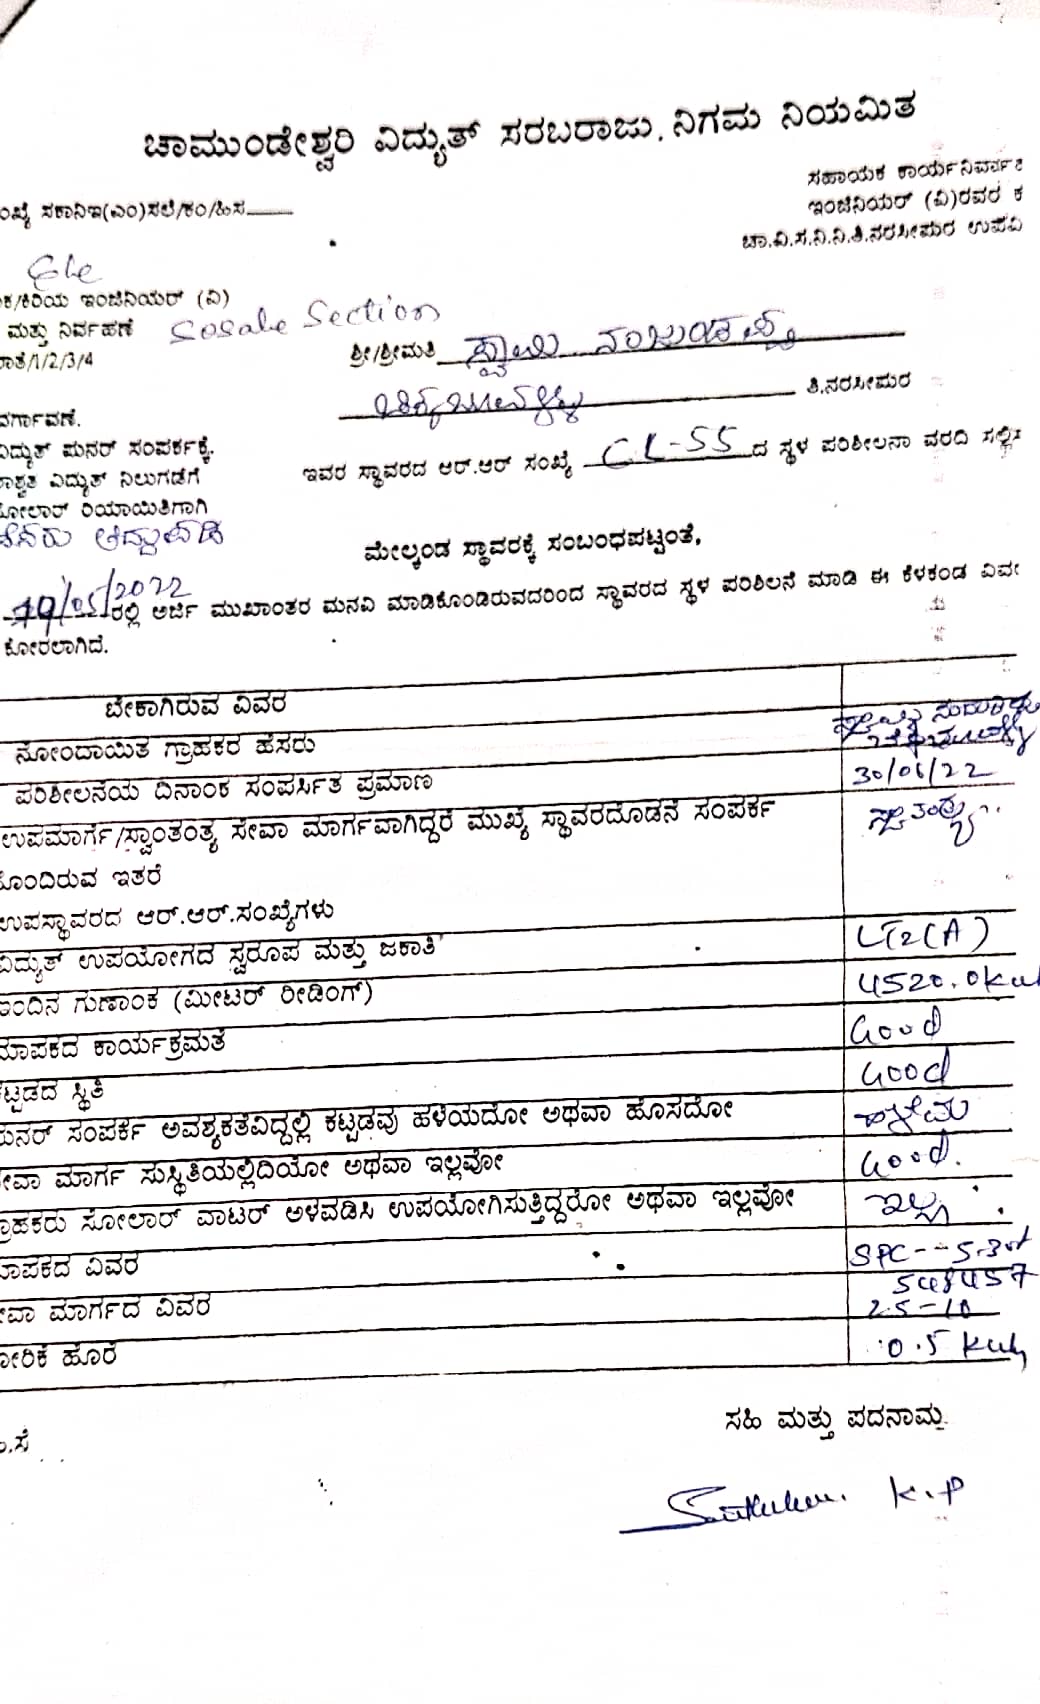 ಚಾಮುಂಡೇಶ್ವರಿ ವಿದ್ಯುತ್ ಸರಬರಾಜು ನಿಗಮ ನಿಯಮಿತ
ಸಹಾಯಕ ಕಾರ್ಯನಿರ್ವಾ
ಇಂಜಿನಿಯರ್ (ವಿ)ರವರ ಕ
ಚಾ.ವಿ.ಸ.ನಿ.ನಿ.ತಿ.ನರಸೀಪುರ ಉಪವಿ
ಂಖ್ಯೆ ಸಕಾನಿಇ(ಎಂ)ಸಲೆ/ಕಂ/ಹಿಸ
ಕ/ಕಿರಿಯ ಇಂಜಿನಿಯರ್ (ವಿ)
ಮತ್ತು ನಿರ್ವಹಣೆ Sosale Section
ಾತೆ/1/2/3/4
ಶ್ರೀ/ಶ್ರೀಮತಿ ಸ್ವಾಮಿ
ತಿ.ನರಸೀಪುರ
ವರ್ಗಾವಣೆ.
ವಿದ್ಯುತ್ ಪುನರ್ ಸಂಪರ್ಕಕ್ಕೆ.
ಾಶ್ವತ ವಿದ್ಯುತ್ ನಿಲುಗಡೆಗೆ
ೋಲಾರ್ ರಿಯಾಯಿತಿಗಾಗಿ
ಇವರ ಸ್ಥಾವರದ ಆರ್.ಆರ್ ಸಂಖ್ಯೆ CL-55 ದ ಸ್ಥಳ ಪರಿಶೀಲನಾ ವರದಿ ಸಲ್ಲಿಸ
ಮೇಲ್ಕಂಡ ಸ್ಥಾವರಕ್ಕೆ ಸಂಬಂಧಪಟ್ಟಂತೆ,
/05/2022 ರಲ್ಲಿ ಅರ್ಜಿ ಮುಖಾಂತರ ಮನವಿ ಮಾಡಿಕೊಂಡಿರುವದರಿಂದ ಸ್ಥಾವರದ ಸ್ಥಳ ಪರಿಶಿಲನೆ ಮಾಡಿ ಈ ಕೆಳಕಂಡ ವಿವ
ಕೋರಲಾಗಿದೆ.
ಬೇಕಾಗಿರುವ ವಿವರ
ನೋಂದಾಯಿತ ಗ್ರಾಹಕರ ಹೆಸರು
ಪರಿಶೀಲನೆಯ ದಿನಾಂಕ ಸಂಪರ್ಸಿತ ಪ್ರಮಾಣ 30/06/22
ಉಪಮಾರ್ಗ/ಸ್ವಾಂತಂತ್ಯ ಸೇವಾ ಮಾರ್ಗವಾಗಿದ್ದರೆ ಮುಖ್ಯೆ ಸ್ಥಾವರದೊಡನೆ ಸಂಪರ್ಕ
ೊಂದಿರುವ ಇತರೆ
ಉಪಸ್ಥಾವರದ ಆರ್.ಆರ್.ಸಂಖ್ಯೆಗಳು
ವಿದ್ಯುತ್ ಉಪಯೋಗದ ಸ್ವರೂಪ ಮತ್ತು ಜಕಾತಿ LT2(A)
ಇಂದಿನ ಗುಣಾಂಕ (ಮೀಟರ್ ರೀಡಿಂಗ್) 4520.0
ಮಾಪಕದ ಕಾರ್ಯಕ್ರಮತೆ Good
ಕಟ್ಟಡದ ಸ್ಥಿತಿ Good
ಪುನರ್ ಸಂಪರ್ಕ ಅವಶ್ಯಕತೆವಿದ್ದಲ್ಲಿ ಕಟ್ಟಡವು ಹಳೆಯದೋ ಅಥವಾ ಹೊಸದೋ
ೇವಾ ಮಾರ್ಗ ಸುಸ್ಥಿತಿಯಲ್ಲಿದಿಯೋ ಅಥವಾ ಇಲ್ಲವೋ Good.
್ರಾಹಕರು ಸೋಲಾರ್ ವಾಟರ್ ಅಳವಡಿಸಿ ಉಪಯೋಗಿಸುತ್ತಿದ್ದರೋ ಅಥವಾ ಇಲ್ಲವೋ ಇಲ್ಲ
ಾಪಕದ ವಿವರ SPC
548457
ೇವಾ ಮಾರ್ಗದ ವಿವರ 2.5-10
ೋರಿಕೆ ಹೊರೆ 0.5
ಸಹಿ ಮತ್ತು ಪದನಾಮ
K.P